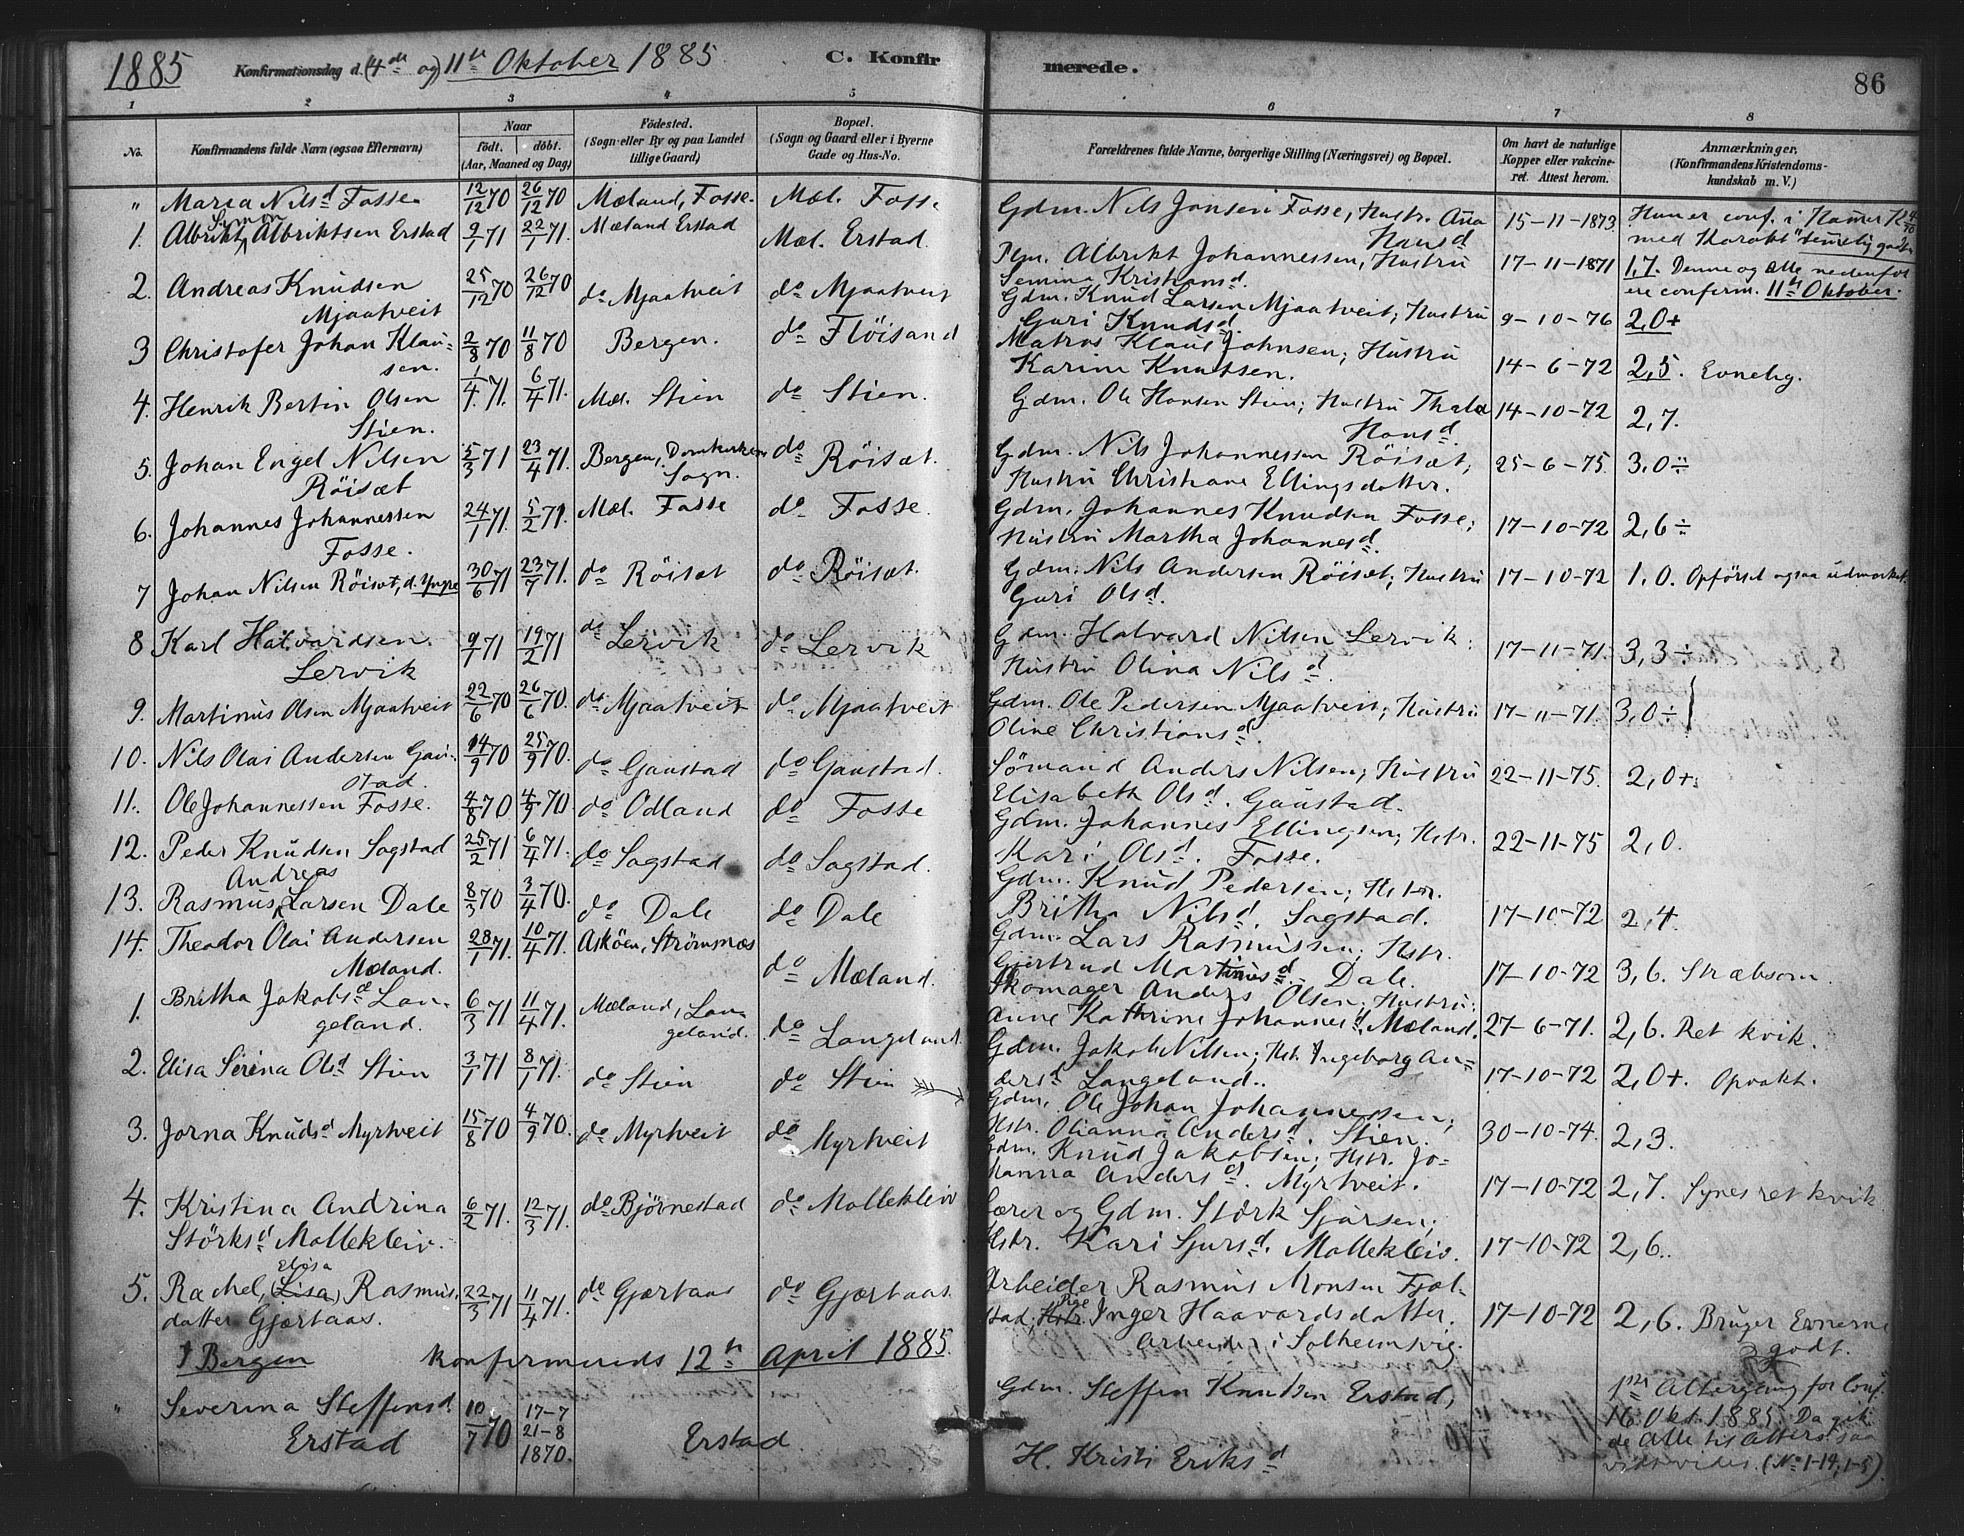 1885 Konfirmationsdag d. (4de og) 11te Oktober 1885. C. Konfirmerede. 86
1 2 3 4 5 6 7 8
No. Konfirmandens fulde Navn (ogsaa Efternavn) Naar født. døbt. (Aar, Maaned og Dag) Fødested. (Sogn eller By og paa Landet tillige Gaard) Bopæl. (Sogn og Gaard eller i Byerne Gade og Hus-No. Forældrenes fulde Navne, borgerlige Stilling (Næringsvei) og Bopæl. Om havt de naturlige Kopper eller vaccineret. Attest herom. Anmærkninger. (Konfirmandens Kristendomskundskab m. V.)
" Maria Nilsd Fosse 12/12 70 26/12 70 Mæland, Fosse. Mæl. Fosse Gdm. Nils Jonsen Fosse, Hustr. Ana Hansd 15-11-1873. Hun er conf. i Hamer K 4/10 med Karakt "temelig godt"
1. Albrikt Simon Albriktsen Erstad 9/1 71 22/1 71. Mæland Erstad Mæl. Erstad. Plm. Albrikt Johannessen, Hustru Semina Kristiansd. 17-11-1871 1,7. Denne og alle nedenfor ere conferm. 11te Oktober.
2. Andreas Knudsen Mjaatveit 25/12 70 26/12 70 do Mjaatveit do Mjaatveit Gdm. Knud Larsen Mjaatveit; Hustru Guri Knudsd. 9-10-76 2,0+
3 Christofer Johan Klausen. 2/8 70 11/8 70 Bergen. do Fløisand Matros Klaus Johnsen; Hustru Karine Knutsen. 14-6-72 2,5. Evnelig.
4. Henrik Bertin Olsen Stien. 1/4 71. 6/4 71. Mæl. Stien do Stien. Gdm. Ole Hansen Stien; Hustru Thala Hansd. 14-10-72 2,7.
5. Johan Engel Nilsen Röisæt 5/3 71 23/4 71. Bergen, Domkirkens Sogn. do Röisæt. Gdm. Nils Johannessen Röisæt; Hustru Christiane Ellingsdatter. 25-6-75. 3,0÷
6. Johannes Johannessen Fosse. 24/1 71. 5/2 71. Mæl. Fosse do Fosse. Gdm. Johannes Knudsen Fosse; Hustru Martha Johannesd. 17-10-72 2,6÷
7 Johan Nilsen Röisæt, d. Yngre 30/6 71 23/7 71. do Röisæt do Röisæt. Gdm. Nils Andersen Röisæt; Hustru Guri Olsd. 17-10-72 1,0. Opförsel ogsaa udmærket.
8 Karl Halvardsen Lervik 9/1 71 19/2 71 do Lervik do Lervik Gdm. Halvard Nilsen Lervik; Hustru Olina Nilsd. 17-11-71. 3,3÷
9. Martinus Olsen Mjaatveit 22/6 70 26/6 70. do Mjaatveit do Mjaatveit Gdm. Ole Pedersen Mjaatveit; Hustru Oline Christiansd. 17-11-71. 3,0÷
10. Nils Olai Andersen Gaustad. 14/9 70 25/9 70. do Gaustad do Gaustad. Sömand Anders Nilsen; Hustru Elisabeth Olsd. Gaustad. 22-11-75. 2,0+
11. Ole Johannessen Fosse. 4/8 70 4/9 70 do Odland do Fosse Gdm. Johannes Ellingsen; Hstr. Kari Olsd. Fosse. 22-11-75 2,0.
12. Peder Knudsen Sagstad 25/2 71 6/4 71. do Sagstad do Sagstad. Gdm. Knud Pedersen; Hstr. Britha Nilsd. Sagstad. 17-10-72 2,4.
13. Rasmus Andreas Larsen Dale 8/3 70 3/4 70. do Dale do Dale Gdm. Lars Rasmussen; Hstr. Gjertrud Martinusd. Dale. 17-10-72 3,6. Stræbsom.
14. Theodor Olai Andersen Mæland. 28/1 71. 10/4 71. Asköen, Strömsnæs do Mæland. Skomager Anders Olsen; Hustru: Anne Kathrine Johannesd. Mæland. 27-6-71. 2,6. Ret kvik.
1. Britha Jakobsd Langeland. 6/3 71 11/4 71. Mæland, Langeland. do Langeland. Gdm. Jakob Nilsen; Hst. Ingeborg Andersd Langeland. 17-10-72 2,0+. Opvakt.
2. Elisa Serina Olsd Stien 3/1 71 8/1 71. do Stien do Stien Gdm. Ole Johan Johannessen; Hstr. Olianna Andersd. Stien. 30-10-74. 2,3.
3. Jorna Knudsd Myrtveit 15/8 70 4/9 70. do Myrtveit do Myrtveit Gdm. Knud Jakobsen; Hstr. Johanna Andersd. Myrtveit. 17-10-72 2,7. Synes ret kvik
4. Kristina Andrina Störksd Mollekleiv. 6/2 71. 12/3 71. do Björnestad do Mollekleiv Lærer og Gdm. Störk Sjursen; Hstr. Kari Sjursd. Mollekleiv. 17-10-72 2,6.
5. Rachel, (Lisa) Elisa Rasmusdatter Gjærtaas. 22/3 71 11/4 71. do Gjærtaas do Gjærtaas. Arbeider Rasmus Monsen Fjolstad; Hstr. Pige Inger Haavardsdatter. Arbeider i Solheimsvig. 17-10-72 2,6. Bruger Evnerne godt.
I Bergen konfirmereds 12te April 1885.
" Severina Steffensd. Erstad 10/7 70 17-7 21-8 1870. Erstad. Gdm. Steffen Knudsen Erstad, H. Kristi Eriksd 1ste Altergang for Conf. 16 Okt. 1885. Da gik de Alle til Alters saa vidt vides. (No 1-14, 1-5).